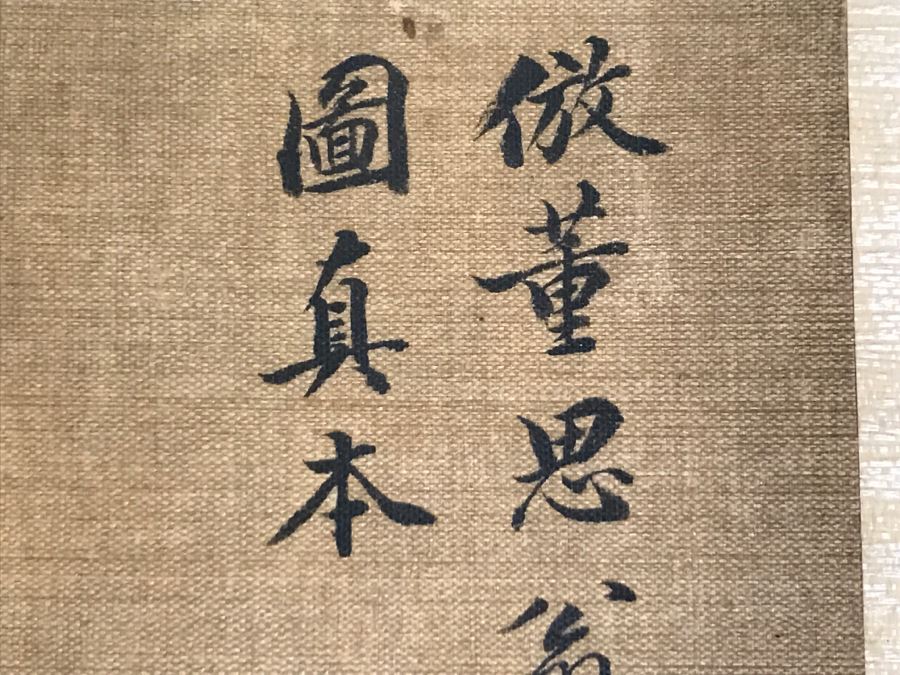 倣董思翁
圖真本